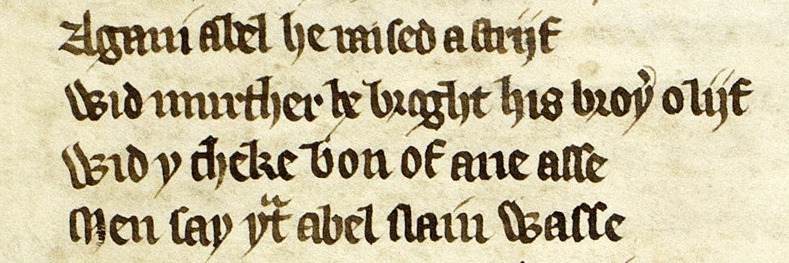 Again abel he raised a strijf
Wid murther he broght his broþ̉ o lijf
Wid þ cheke bon of ane asse
Men say þᵗ abel slain wasse